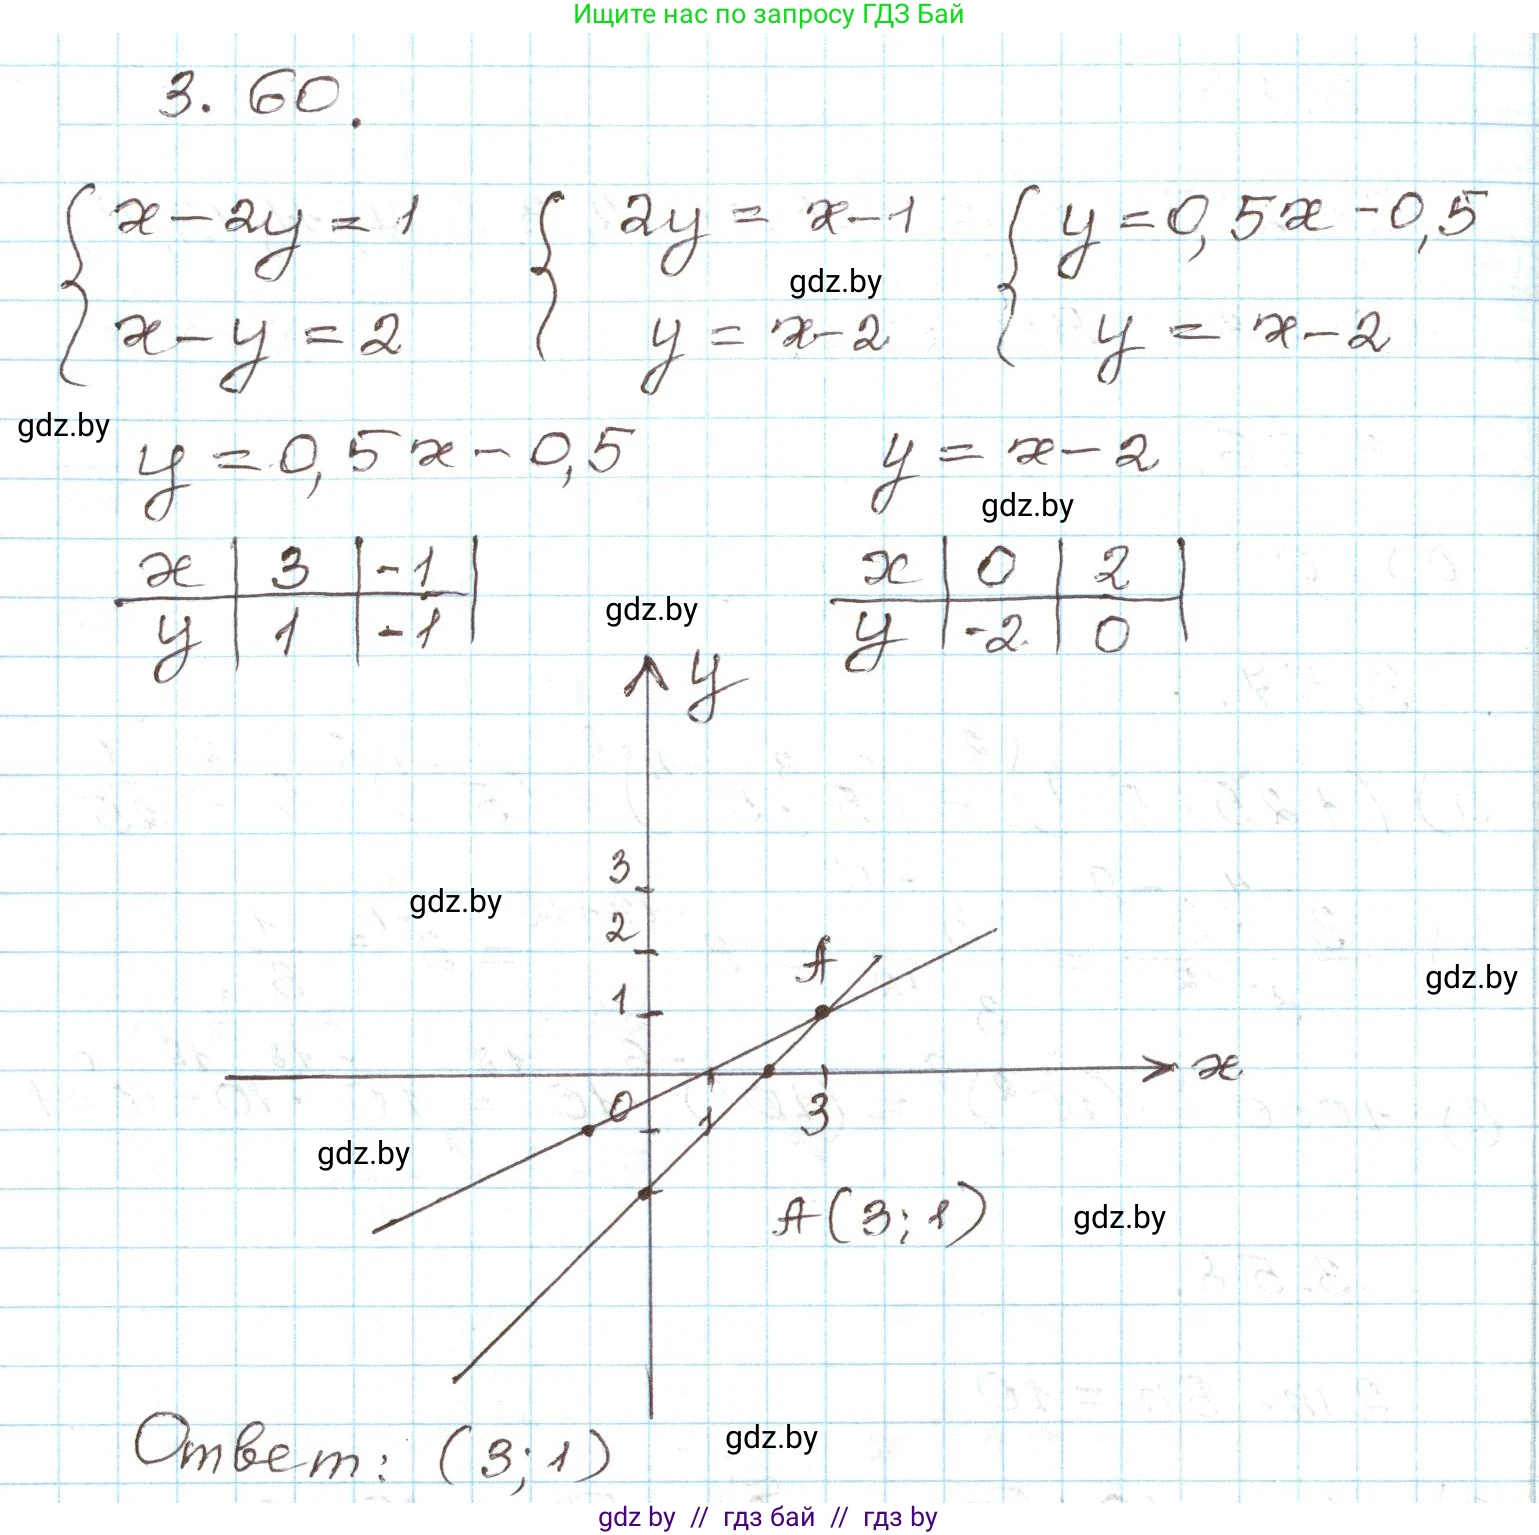 Ищите нас по запросу ГДЗ Бай
3. 60.
x - 2y = 1 2y = x - 1 y = 0,5x - 0,5
gdz.by
x - y = 2 y = x - 2 y = x - 2
gdz.by
y = 0,5x - 0,5 y = x - 2
gdz.by
x 3 -1 x 0 2
gdz.by
y 1 -1 y -2 0
y
3
gdz.by
2
A
gdz.by
1
x
0 1 3
gdz.by
A(3;1)
gdz.by
Ответ: (3;1)
gdz.by
gdz by // гдз бай // гдз by